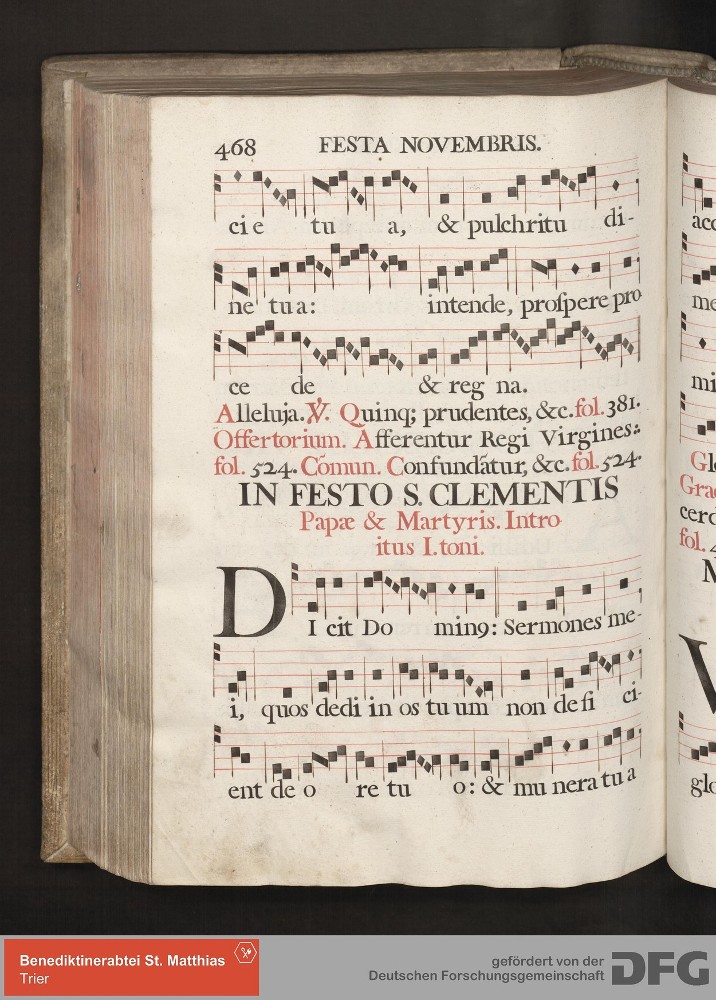 468 FESTA NOVEMBRIS.
ci e tu a, & pulchritu di-
ne tua: intende, proſpere pro
ce de & reg na.
Alleluja. ℣. Quinq; prudentes, &c. fol. 381.
Offertorium. Afferentur Regi Virgines:
fol. 524. Cōmun. Confundātur, &c. fol. 524.
IN FESTO S. CLEMENTIS
Papæ & Martyris. Intro
itus I. toni.
DI cit Do minꝰ: Sermones me-
i, quos dedi in os tu um non de fi ci-
ent de o re tu o: & mu nera tu a
acc
me
mi
Glo
Grad
cerd
fol. 4
M
V
glo
Benediktinerabtei St. Matthias
Trier
gefördert von der
Deutschen Forschungsgemeinschaft
DFG